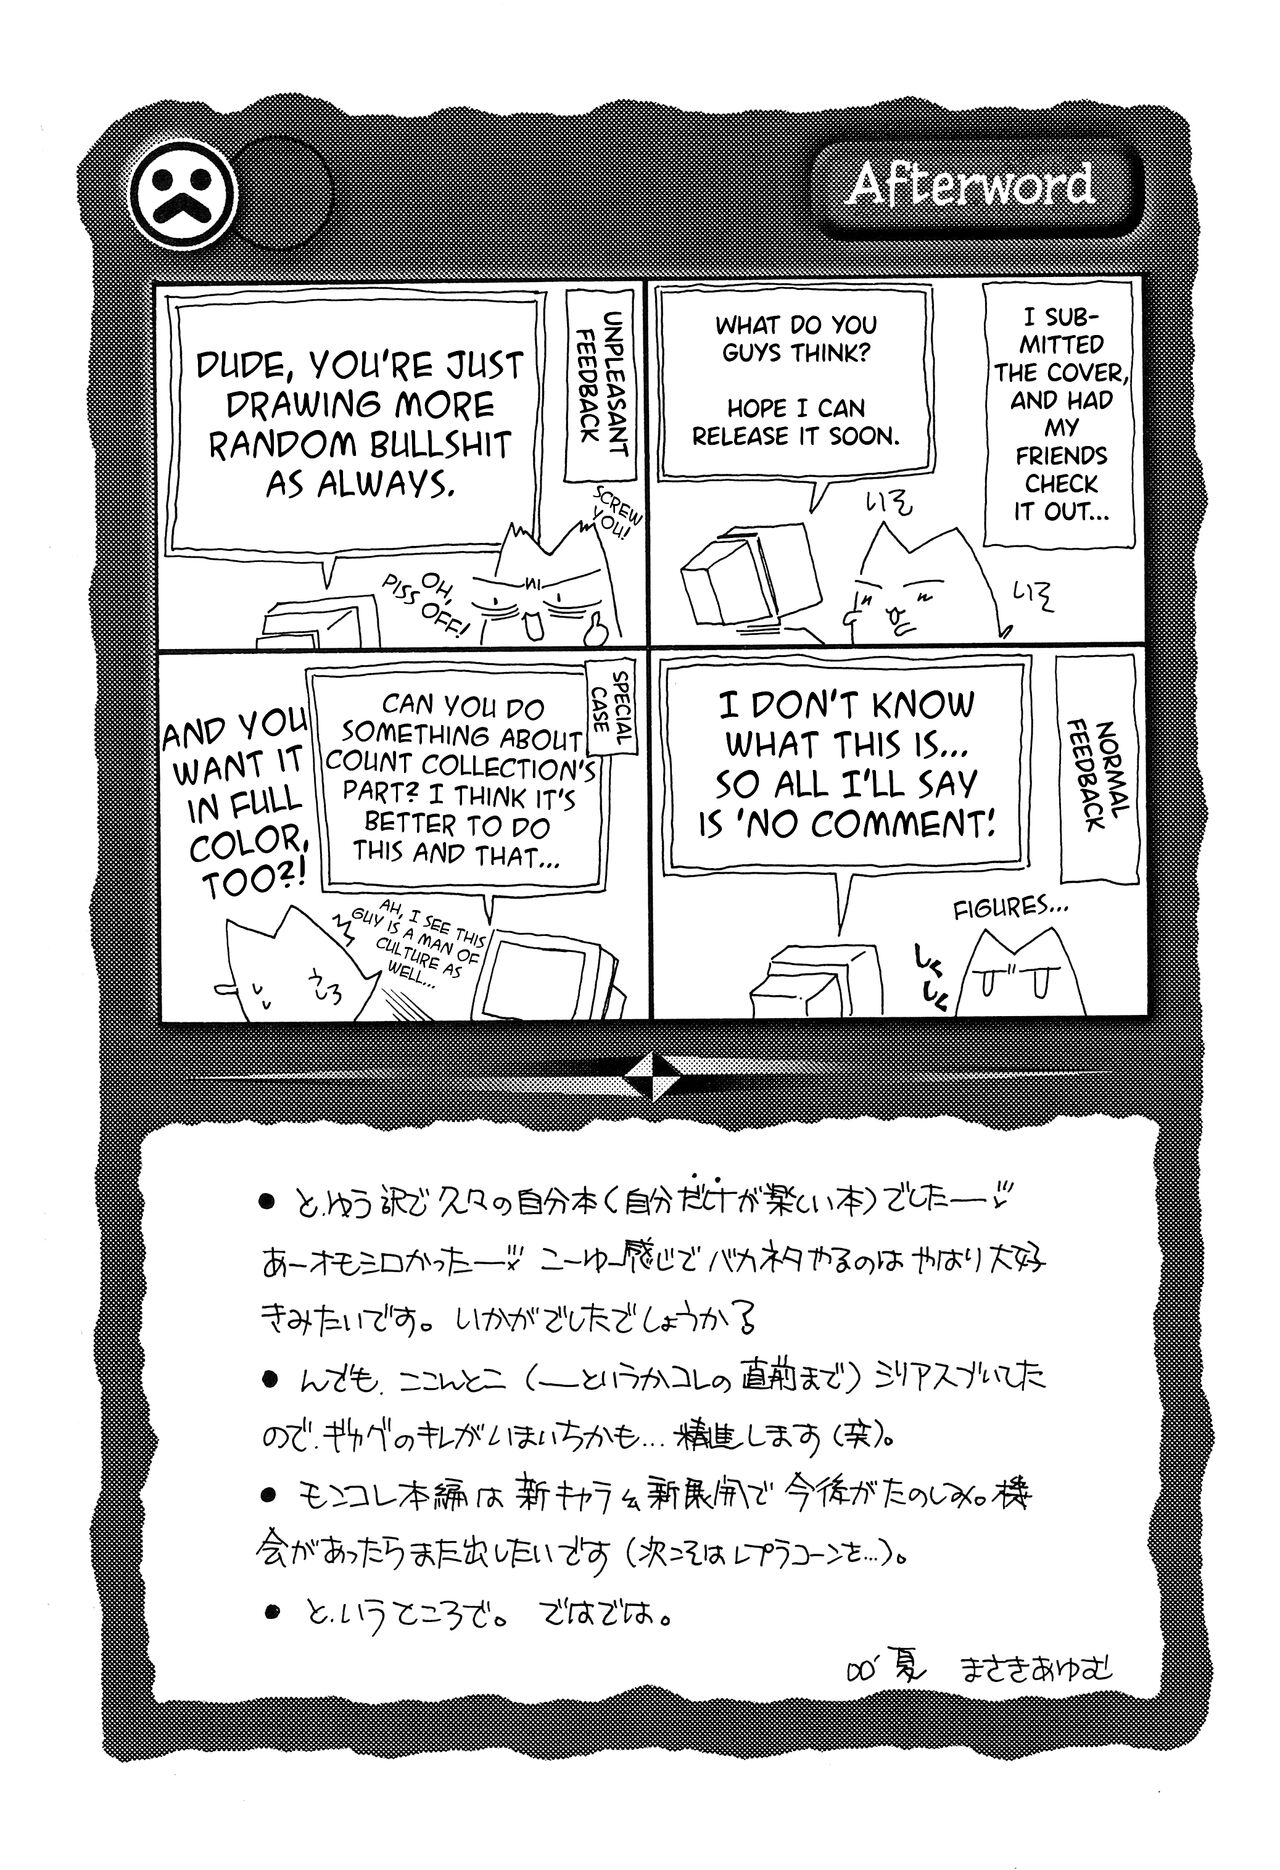 Afterword
I SUB-
MITTED
THE COVER,
AND HAD
MY
FRIENDS
CHECK
IT OUT...
WHAT DO YOU
GUYS THINK?
HOPE I CAN
RELEASE IT SOON.
UNPLEASANT
FEEDBACK
DUDE, YOU'RE JUST
DRAWING MORE
RANDOM BULLSHIT
AS ALWAYS.
SCREW
YOU!
OH,
PISS OFF!
NORMAL
FEEDBACK
I DON'T KNOW
WHAT THIS IS...
SO ALL I'LL SAY
IS 'NO COMMENT!
FIGURES...
しく
しく
SPECIAL
CASE
CAN YOU DO
SOMETHING ABOUT
COUNT COLLECTION'S
PART? I THINK IT'S
BETTER TO DO
THIS AND THAT...
AND YOU
WANT IT
IN FULL
COLOR,
TOO?!
AH, I SEE THIS
GUY IS A MAN OF
CULTURE AS
WELL...
● と、ゆう訳で久々の自分本(自分だけが楽しい本)でしたー
あーオモシロかったー こーゆー感じでバカネタやるのは やはり大好
きみたいです。 いかがでしたでしょうか?
● んでも、ここんとこ (ーというかコレの直前まで) シリアスづいてた
ので、ギャグのキレがいまいちかも… 精進します(笑)。
● モンコレ本編は 新キャラ& 新展開で 今後がたのしみ。機
会があったらまた出したいです (次こそはレプラコーンを…)。
● と、いうところで。 ではでは。
00' 夏 まさきあゆむ